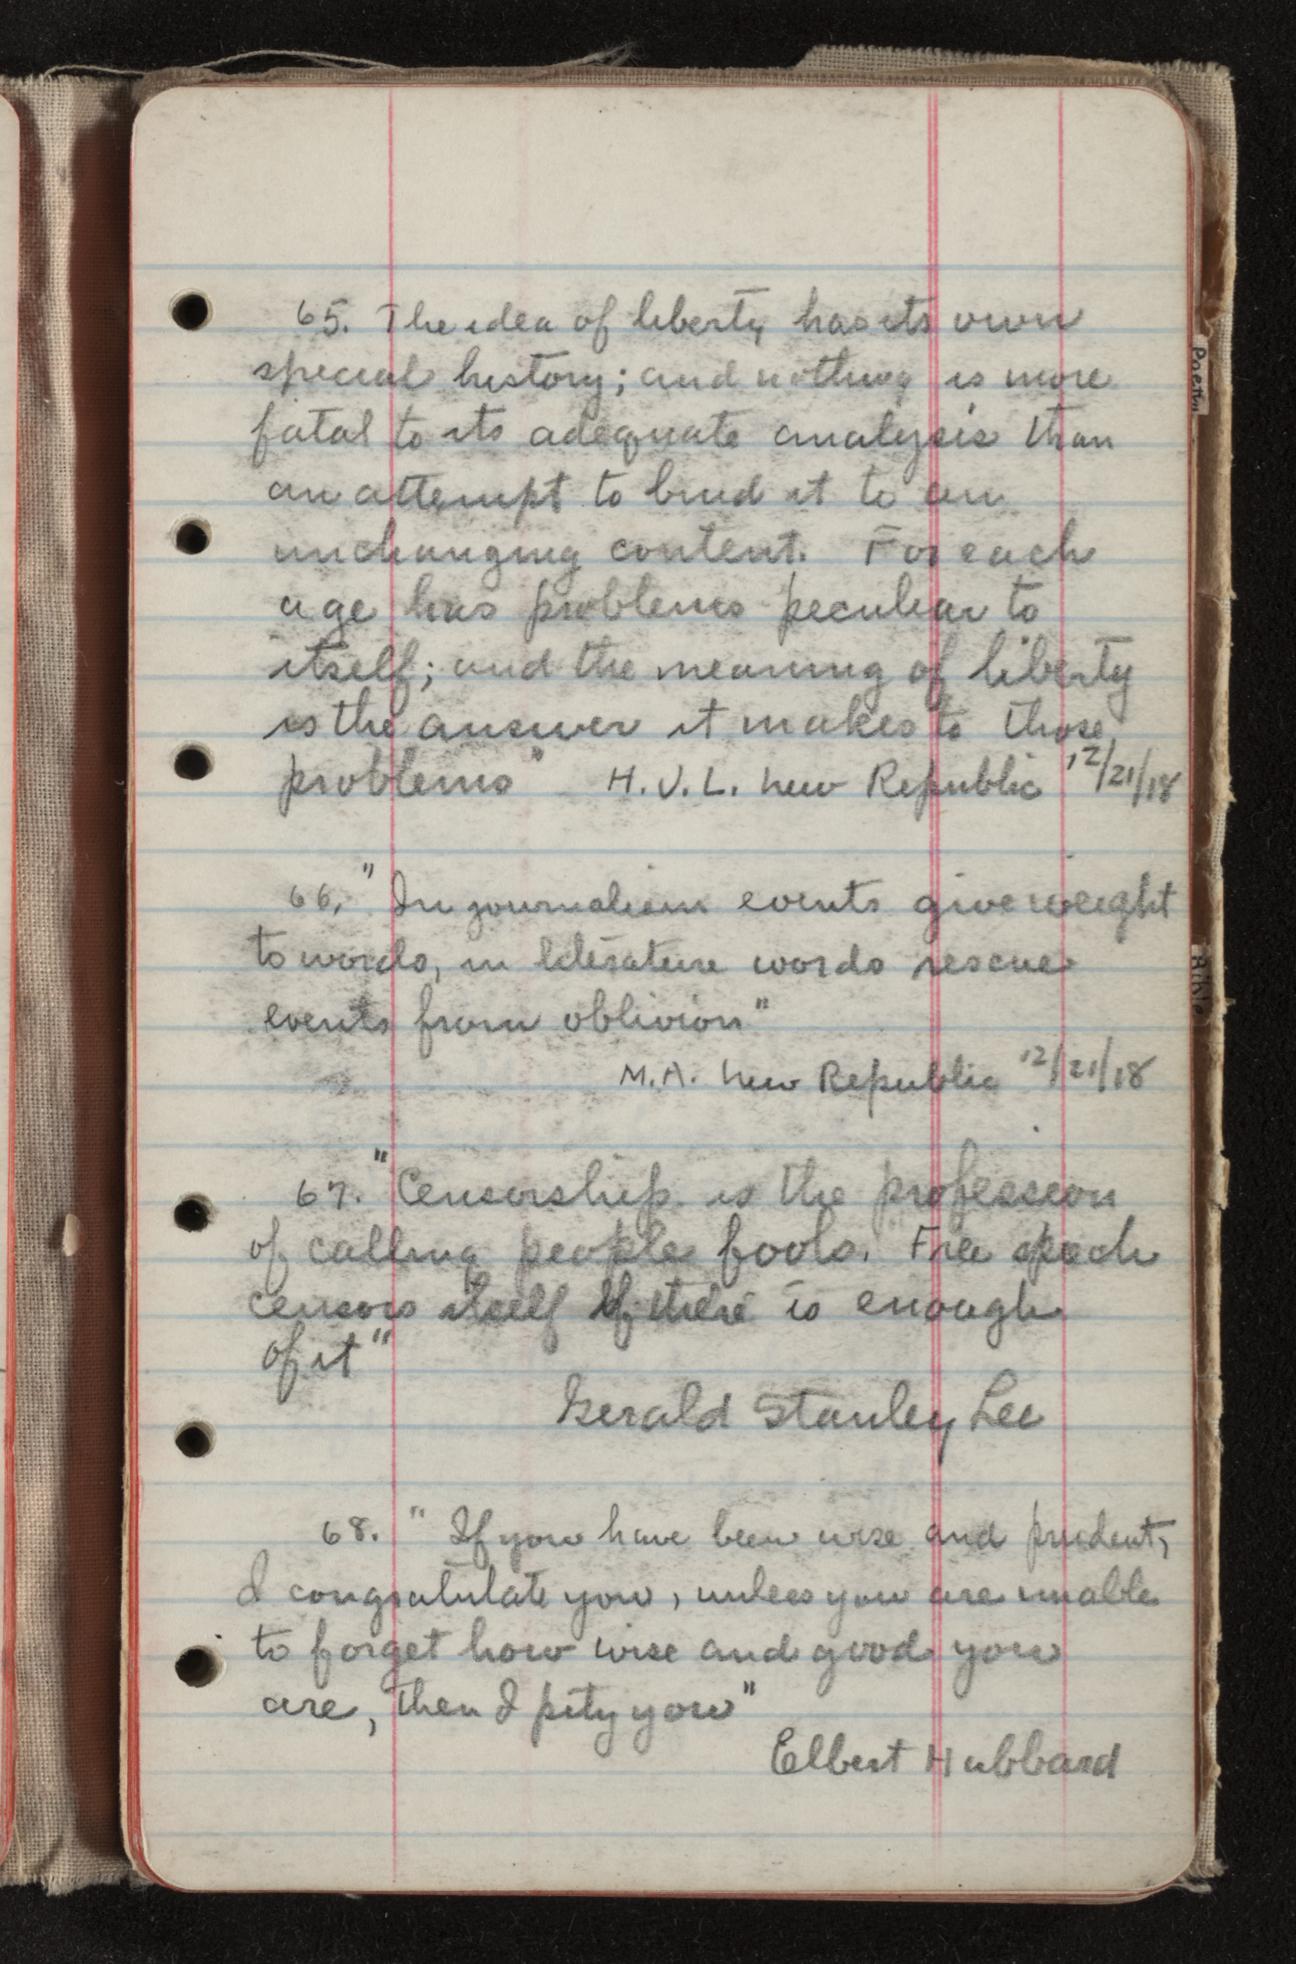 65. The idea of liberty has its own
special history; and nothing is more
fatal to its adequate analysis than
an attempt to bind it to an
unchanging content. For each
age has problems peculiar to
itself; and the meaning of liberty
is the answer it makes to those
problems" H.J.L. New Republic 12/21/18
66. "In journalism events give weight
to words, in literature words rescue
events from oblivion"
M.A. New Republic 12/21/18
67. "Censorship is the profession
of calling people fools. Free speech
censors itself if there is enough
of it"
Gerald Stanley Lee
68. "If you have been wise and prudent,
I congratulate you, unless you are unable
to forget how wise and good you
are, then I pity you"
Elbert Hubbard
Poetry
Bible